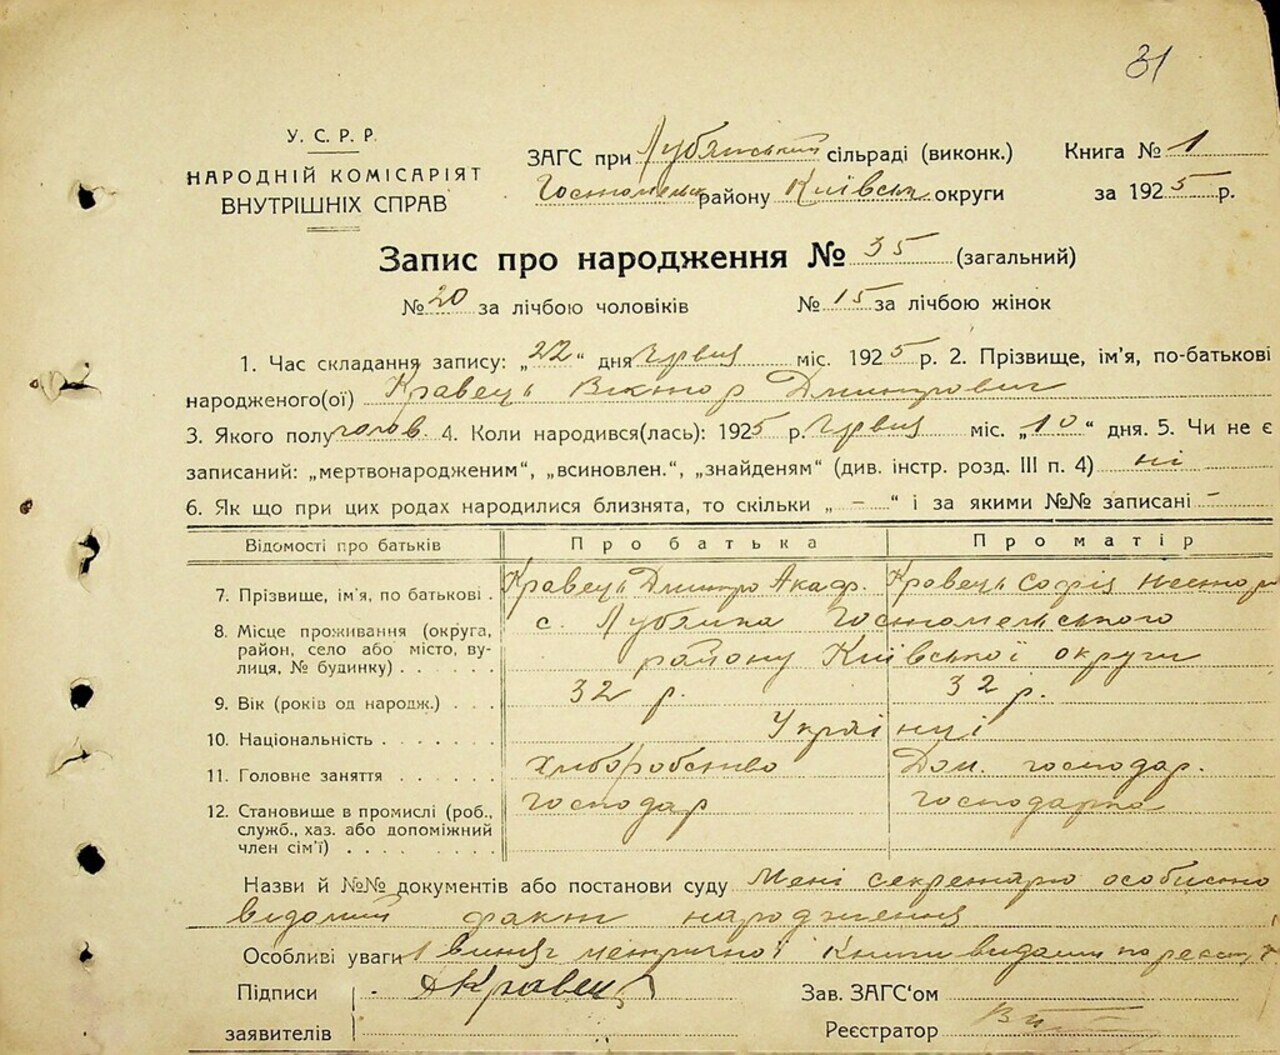 31
У. С. Р. Р.
НАРОДНІЙ КОМІСАРІЯТ
ВНУТРІШНІХ СПРАВ
ЗАГС при Лубянський сільраді (виконк.)
Гостомельськ району Київськ округи
Книга № 1
за 1925 р.
Запис про народження № 35 (загальний)
№ 20 за лічбою чоловіків № 15 за лічбою жінок
1. Час складання запису: „22“ дня Червня міс. 1925 р. 2. Прізвище, ім'я, по-батькові
народженого(ої) Кравець Віктор Дмитрович
3. Якого полу чолов. 4. Коли народився(лась): 1925 р. Червня міс. „10“ дня. 5. Чи не є
записаний: „мертвонародженим“, „всиновлен.“, „знайденям“ (див. інстр. розд. III п. 4) ні
6. Як що при цих родах народилися близнята, то скільки „ – “ і за якими №№ записані –
Відомості про батьків Про батька Про матір
7. Прізвище, ім'я, по батькові . Кравець Дмитро Акаф. Кравець Софія Нестор
8. Місце проживання (округа, с. Лубянка Гостомельського
район, село або місто, ву-
лиця, № будинку) . . . . . району Київської округи
9. Вік (років од народж.) . . . 32 р. 32 р.
10. Національність . . . . . . . Українці
11. Головне заняття . . . . . . Хліборобство Дом. господар.
12. Становище в промислі (роб., господар господарка
служб., хаз. або допоміжний
член сім'ї) . . . . . . . .
Назви й №№ документів або постанови суду Мені секретарю особисто
відомий факт народження
Особливі уваги 1 витяг метричної Книги видани по реєст
Підписи ДКравець
заявителів
Зав. ЗАГС'ом
Реєстратор